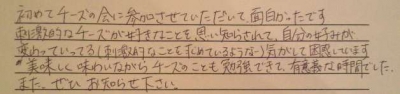 初めてチーズの会に参加させていただいて、面白かったです
刺激的なチーズが好きなことを思い知らされて、自分の好みが
変わっていってる(刺激的なことを求めているような…)気がして困惑しています
美味しく味わいながらチーズのことも勉強できて、有意義な時間でした。
また、ぜひお知らせ下さい。